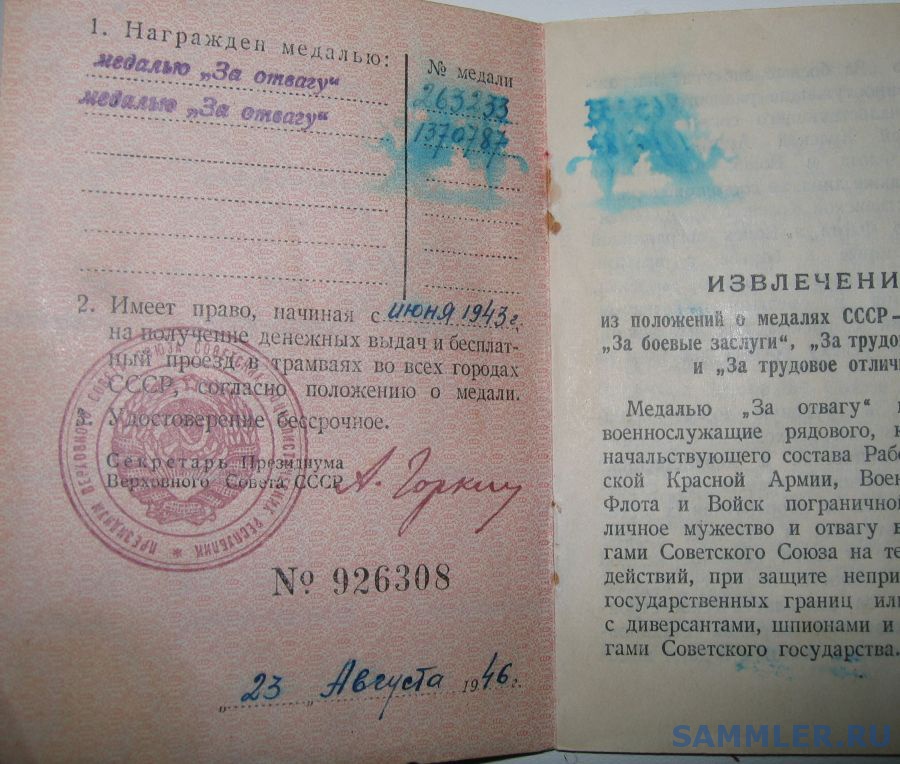 1. Награжден медалью:
№ медали
медалью „За отвагу“
263233
медалью „За отвагу“
1370787
2. Имеет право, начиная с июня 1943 г.
на получение денежных выдач и бесплат-
ный проезд в трамваях во всех городах
СССР, согласно положению о медали.
3. Удостоверение бессрочное.
Секретарь Президиума
Верховного Совета СССР
А. Горкин
№ 926308
„23„ Августа 1946 г.
ПРЕЗИДИУМ ВЕРХОВНОГО СОВЕТА СОЮЗА СОВЕТСКИХ СОЦИАЛИСТИЧЕСКИХ РЕСПУБЛИК
ИЗВЛЕЧЕНИ
из положений о медалях СССР—
„За боевые заслуги“, „За трудо
и „За трудовое отличи
Медалью „За отвагу“
военнослужащие рядового,
начальствующего состава Рабо
ской Красной Армии, Воен
Флота и Войск пограничной
личное мужество и отвагу
гами Советского Союза на те
действий, при защите непри
государственных границ или
с диверсантами, шпионами и
гами Советского государства.
SAMMLER.RU